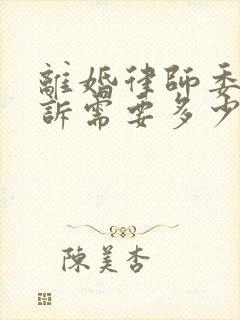 離婚律師委
訴需要多少
陳美杏